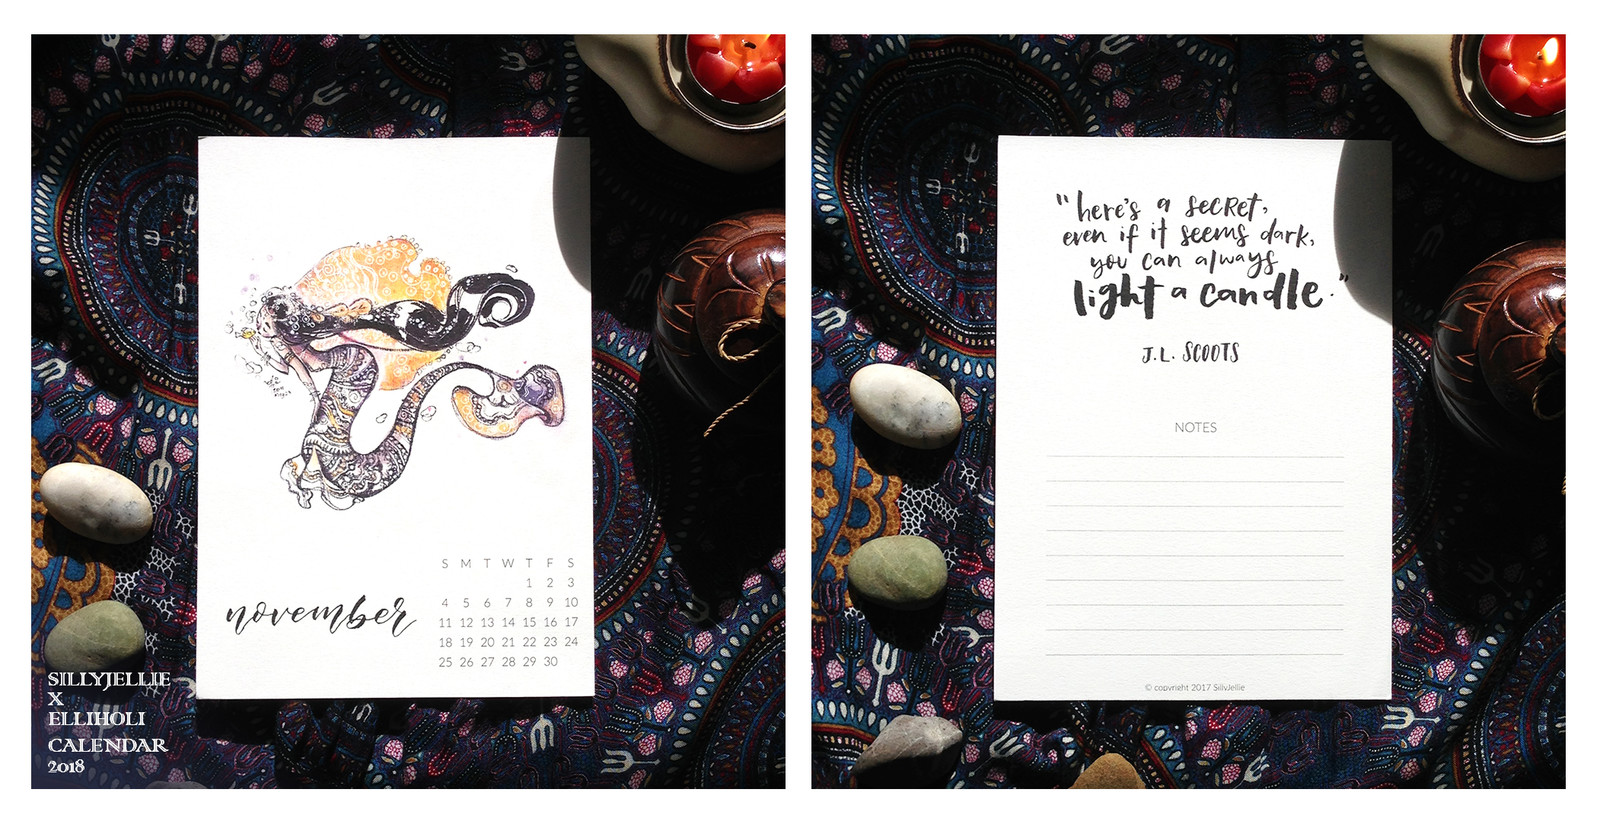 november
S M T W T F S
1 2 3
4 5 6 7 8 9 10
11 12 13 14 15 16 17
18 19 20 21 22 23 24
25 26 27 28 29 30
SILLYJELLIE
X
ELLIHOLI
CALENDAR
2018
"here's a secret,
even if it seems dark,
you can always
light a candle."
J.L. SCOOTS
NOTES
© copyright 2017 SillyJellie